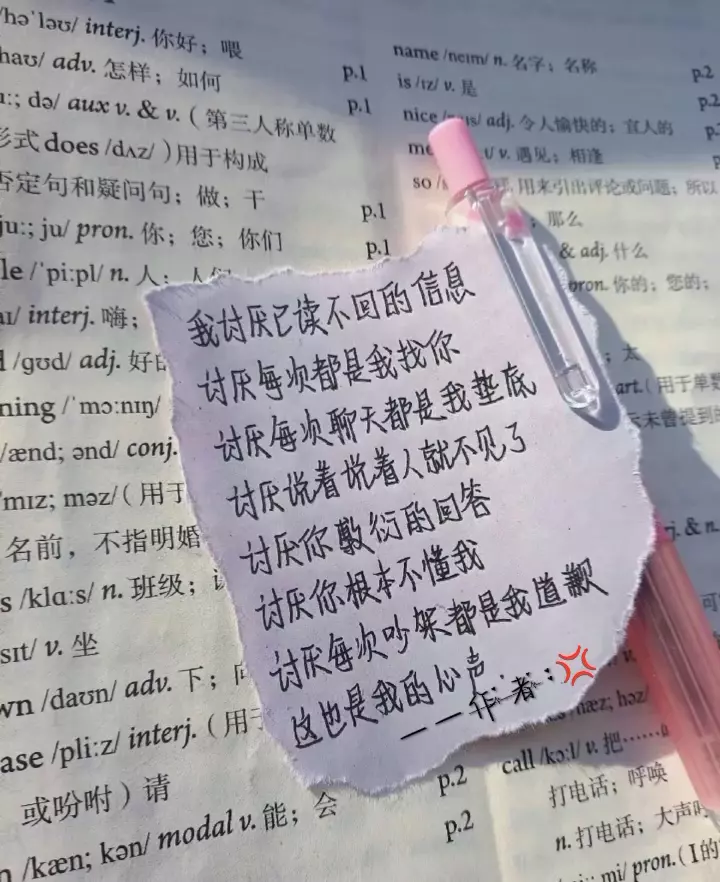 /həˈləʊ/ interj. 你好；喂
haʊ/ adv. 怎样；如何 p.1
uː; də/ aux v. & v.（第三人称单数 p.1
形式 does /dʌz/）用于构成
否定句和疑问句；做；干 p.1
juː; ju/ pron. 你；您；你们 p.1
le /ˈpiːpl/ n. 人；人们
aɪ/ interj. 嗨；
d /ɡʊd/ adj. 好的
ning /ˈmɔːnɪŋ/
/ænd; ənd/ conj.
/mɪz; məz/（用于
名前，不指明婚
s /klɑːs/ n. 班级；
sɪt/ v. 坐
wn /daʊn/ adv. 下；向
ase /pliːz/ interj.（用于
或吩咐）请 p.2
n /kæn; kən/ modal v. 能；会 p.2
name /neɪm/ n. 名字；名称 p.2
is /ɪz/ v. 是 p.2
nice /naɪs/ adj. 令人愉快的；宜人的 p.2
me t/ v. 遇见；相逢
so / 用来引出评论或问题；所以
；那么
& adj. 什么
pron. 你的；您的；
；太
art.（用于单数
示未曾提到
我讨厌已读不回的信息
讨厌每次都是我找你
讨厌每次聊天都是我垫底
讨厌说着说着人就不见了
讨厌你敷衍的回答
讨厌你根本不懂我
讨厌每次吵架都是我道歉
这也是我的心声
——作者：
j. & n.
hæz; həz/
call /kɔːl/ v. 把……
打电话；呼唤
n. 打电话；大声
mi/ pron.（I的